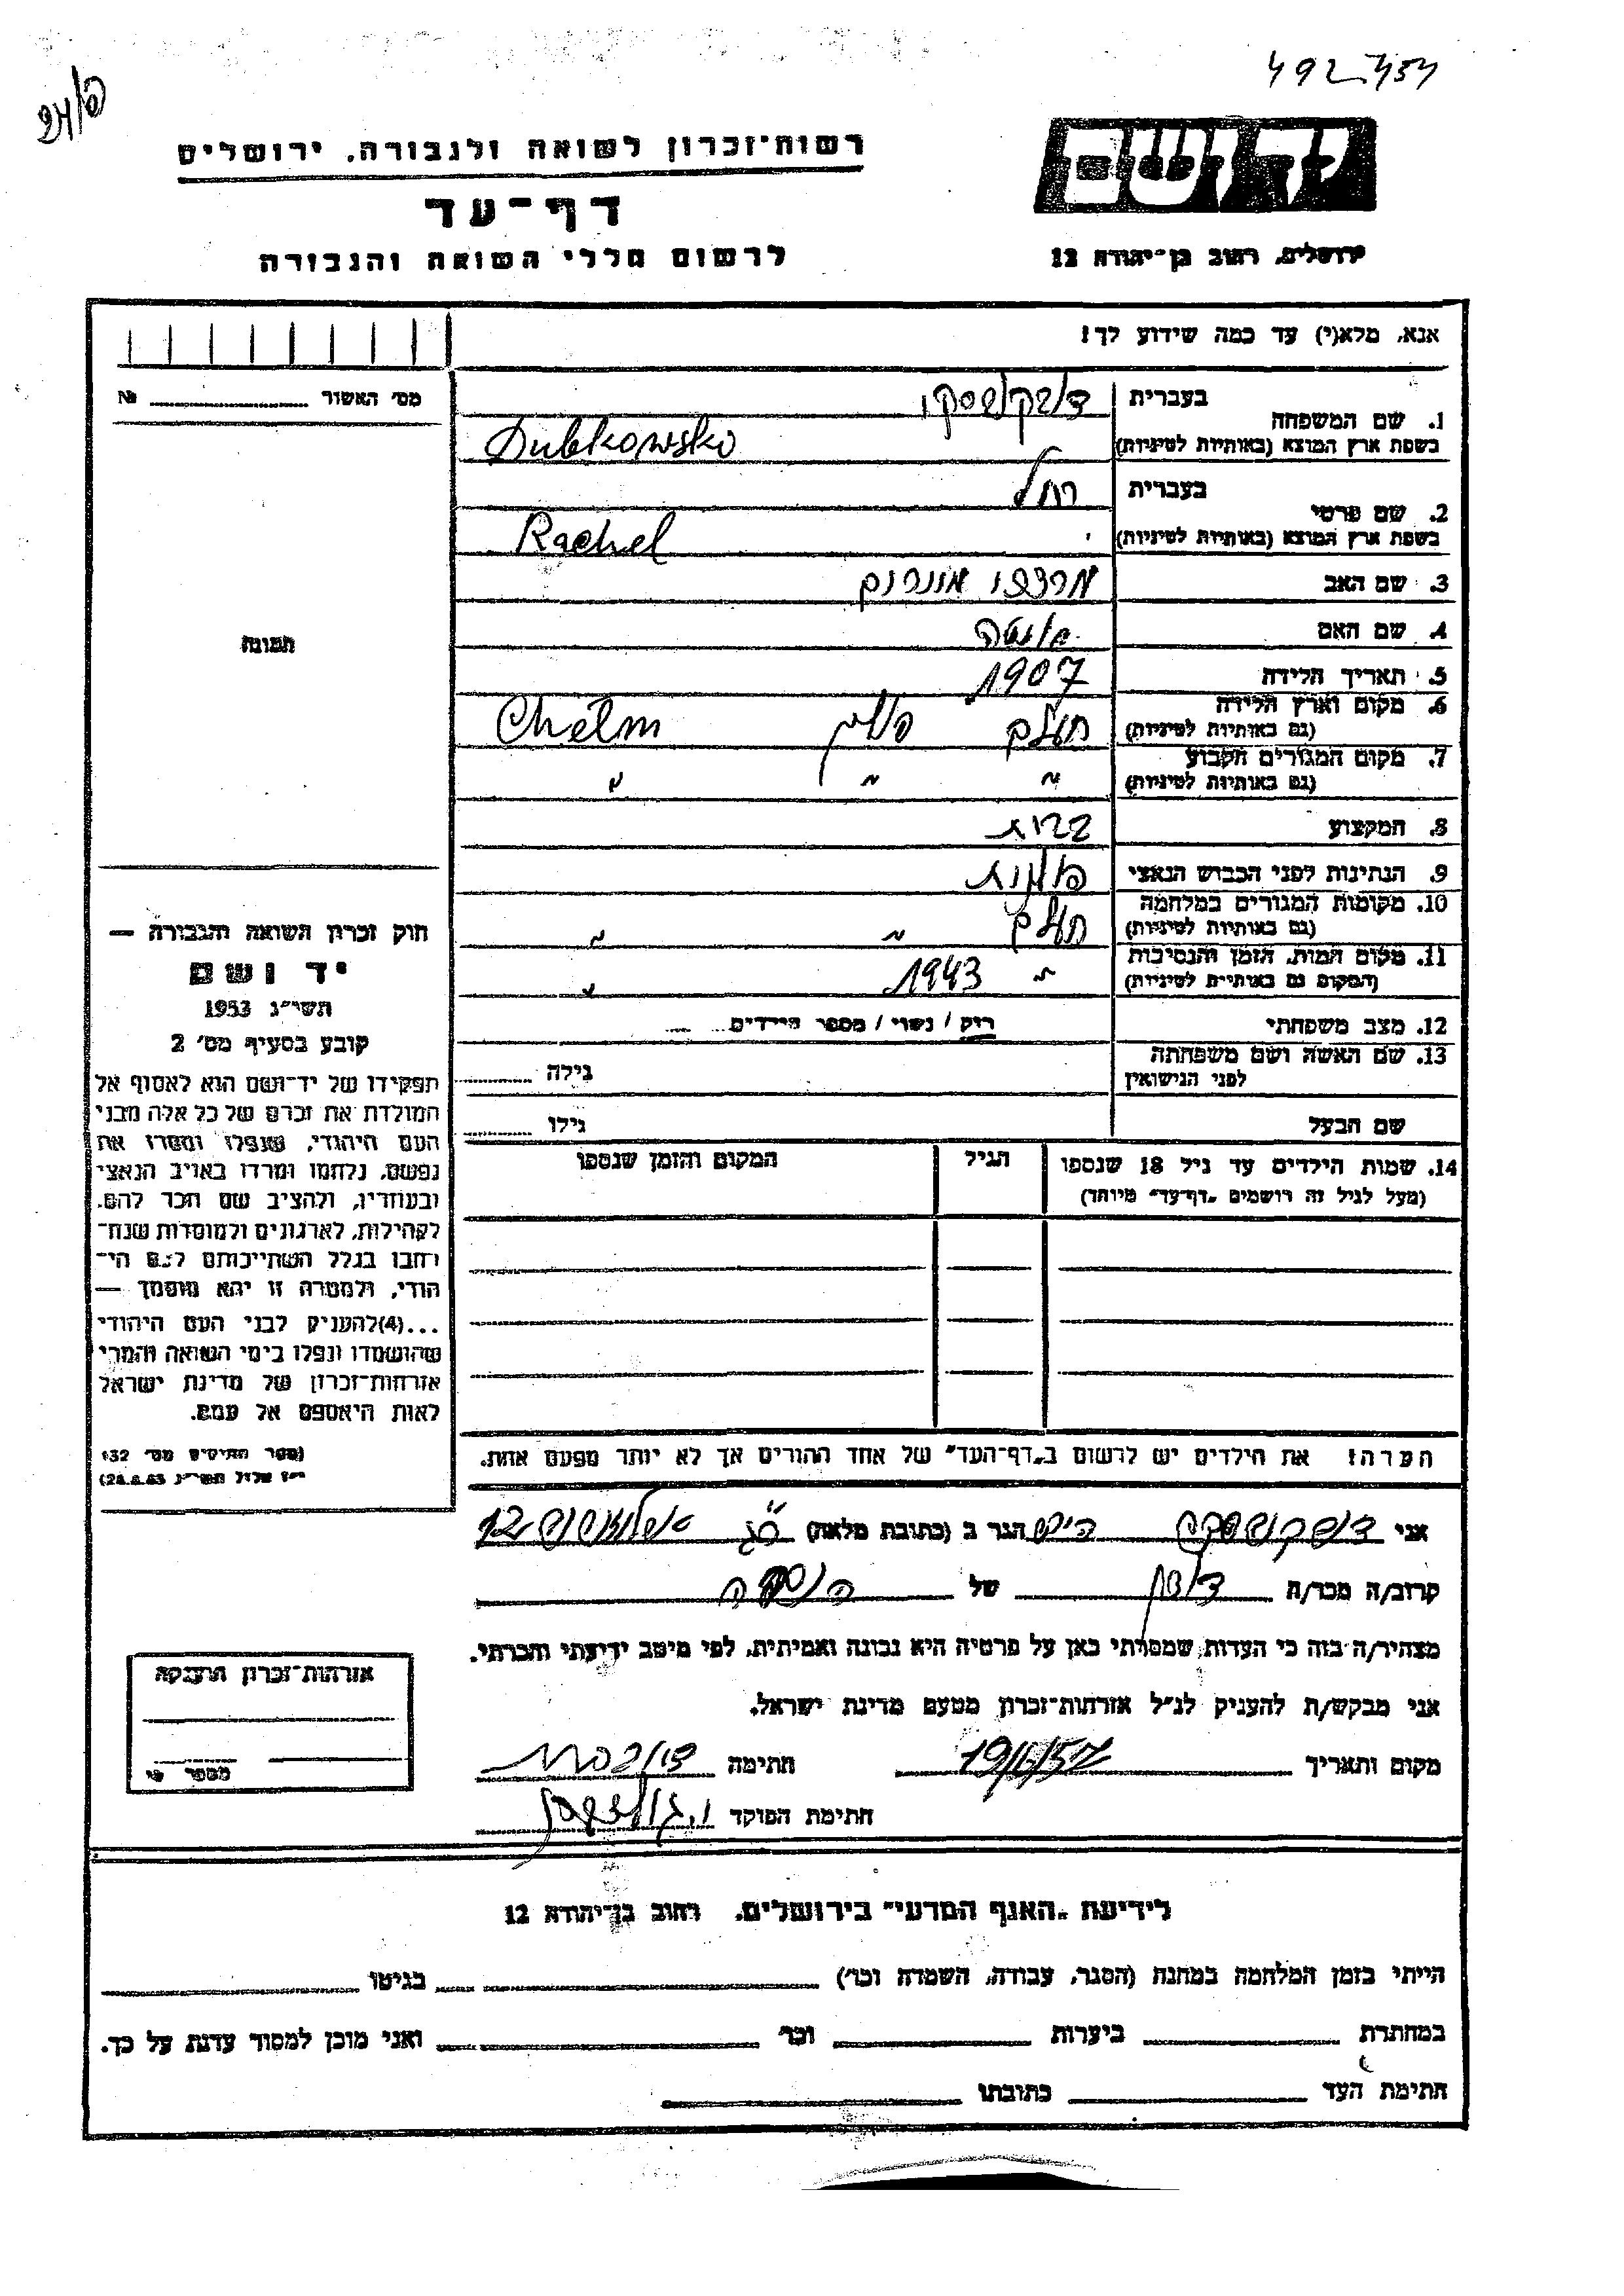 492 454
רשות־זכרון לשואה ולגבורה, ירושלים
יד ושם
דף־עד
לרשום חללי השואה והגבורה
ירושלים, רחוב בן־יהודה 12
אנא, מלא(י) עד כמה שידוע לך!
מס' האשור № 
1. שם המשפחה
בעברית דובקובסקי
בשפת ארץ המוצא (באותיות לטיניות) Dubkowsko
2. שם פרטי
בעברית רחל
בשפת ארץ המוצא (באותיות לטיניות) Rachel
3. שם האב מרדכי
4. שם האם
5. תאריך הלידה 1907
6. מקום וארץ הלידה (גם באותיות לטיניות) חלם פולין Chełm
7. מקום המגורים הקבוע (גם באותיות לטיניות) " " "
8. המקצוע
9. הנתינות לפני הכבוש הנאצי פולנית
10. מקומות המגורים במלחמה (גם באותיות לטיניות) חלם " "
11. מקום המות, הזמן והנסיבות (המקום גם באותיות לטיניות) " 1943 "
12. מצב משפחתי רוק / נשוי / מספר הילדים
13. שם האשה ושם משפחתה לפני הנישואין גילה
שם הבעל גילו
14. שמות הילדים עד גיל 18 שנספו (מעל לגיל זה רושמים "דף־עד" מיוחד) הגיל המקום והזמן שנספו
תמונה
חוק זכרון השואה והגבורה —
יד ושם
תשי"ג 1953
קובע בסעיף מס' 2
תפקידו של יד־ושם הוא לאסוף אל
המולדת את זכרם של כל אלה מבני
העם היהודי, שנפלו ומסרו את
נפשם, נלחמו ומרדו באויב הנאצי
ובעוזריו, ולהציב שם וזכר להם,
לקהילות, לארגונים ולמוסדות שנח־
רבו בגלל השתייכותם לעם הי־
הודי, ולמטרה זו יהא מוסמך —
...(4)להעניק לבני העם היהודי
שהושמדו ונפלו בימי השואה והמרי
אזרחות־זכרון של מדינת ישראל
לאות היאספם אל עמם.
(ספר החוקים מס' 132
י"ז אלול תשי"ג 28.8.53)
הערה! את הילדים יש לרשום ב"דף־העד" של אחד ההורים אך לא יותר מפעם אחת.
אני הגר ב (כתובת מלאה)
קרוב/ה מכר/ה של
מצהיר/ה בזה כי העדות שמסרתי כאן על פרטיה היא נכונה ואמיתית, לפי מיטב ידיעתי והכרתי.
אני מבקש/ת להעניק לנ"ל אזרחות־זכרון מטעם מדינת ישראל.
מקום ותאריך חתימה
חתימת הפוקד
אזרחות־זכרון הוענקה
מספר
לידיעת "האגף המדעי" בירושלים, רחוב בן־יהודה 12
הייתי בזמן המלחמה במחנה (הסגר, עבודה, השמדה וכו') בגיטו
במחתרת ביערות וכו' ואני מוכן למסור עדות על כך.
חתימת העד כתובתו